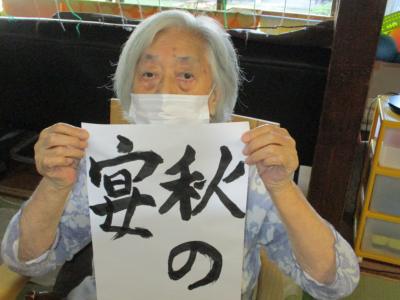 秋の
宴